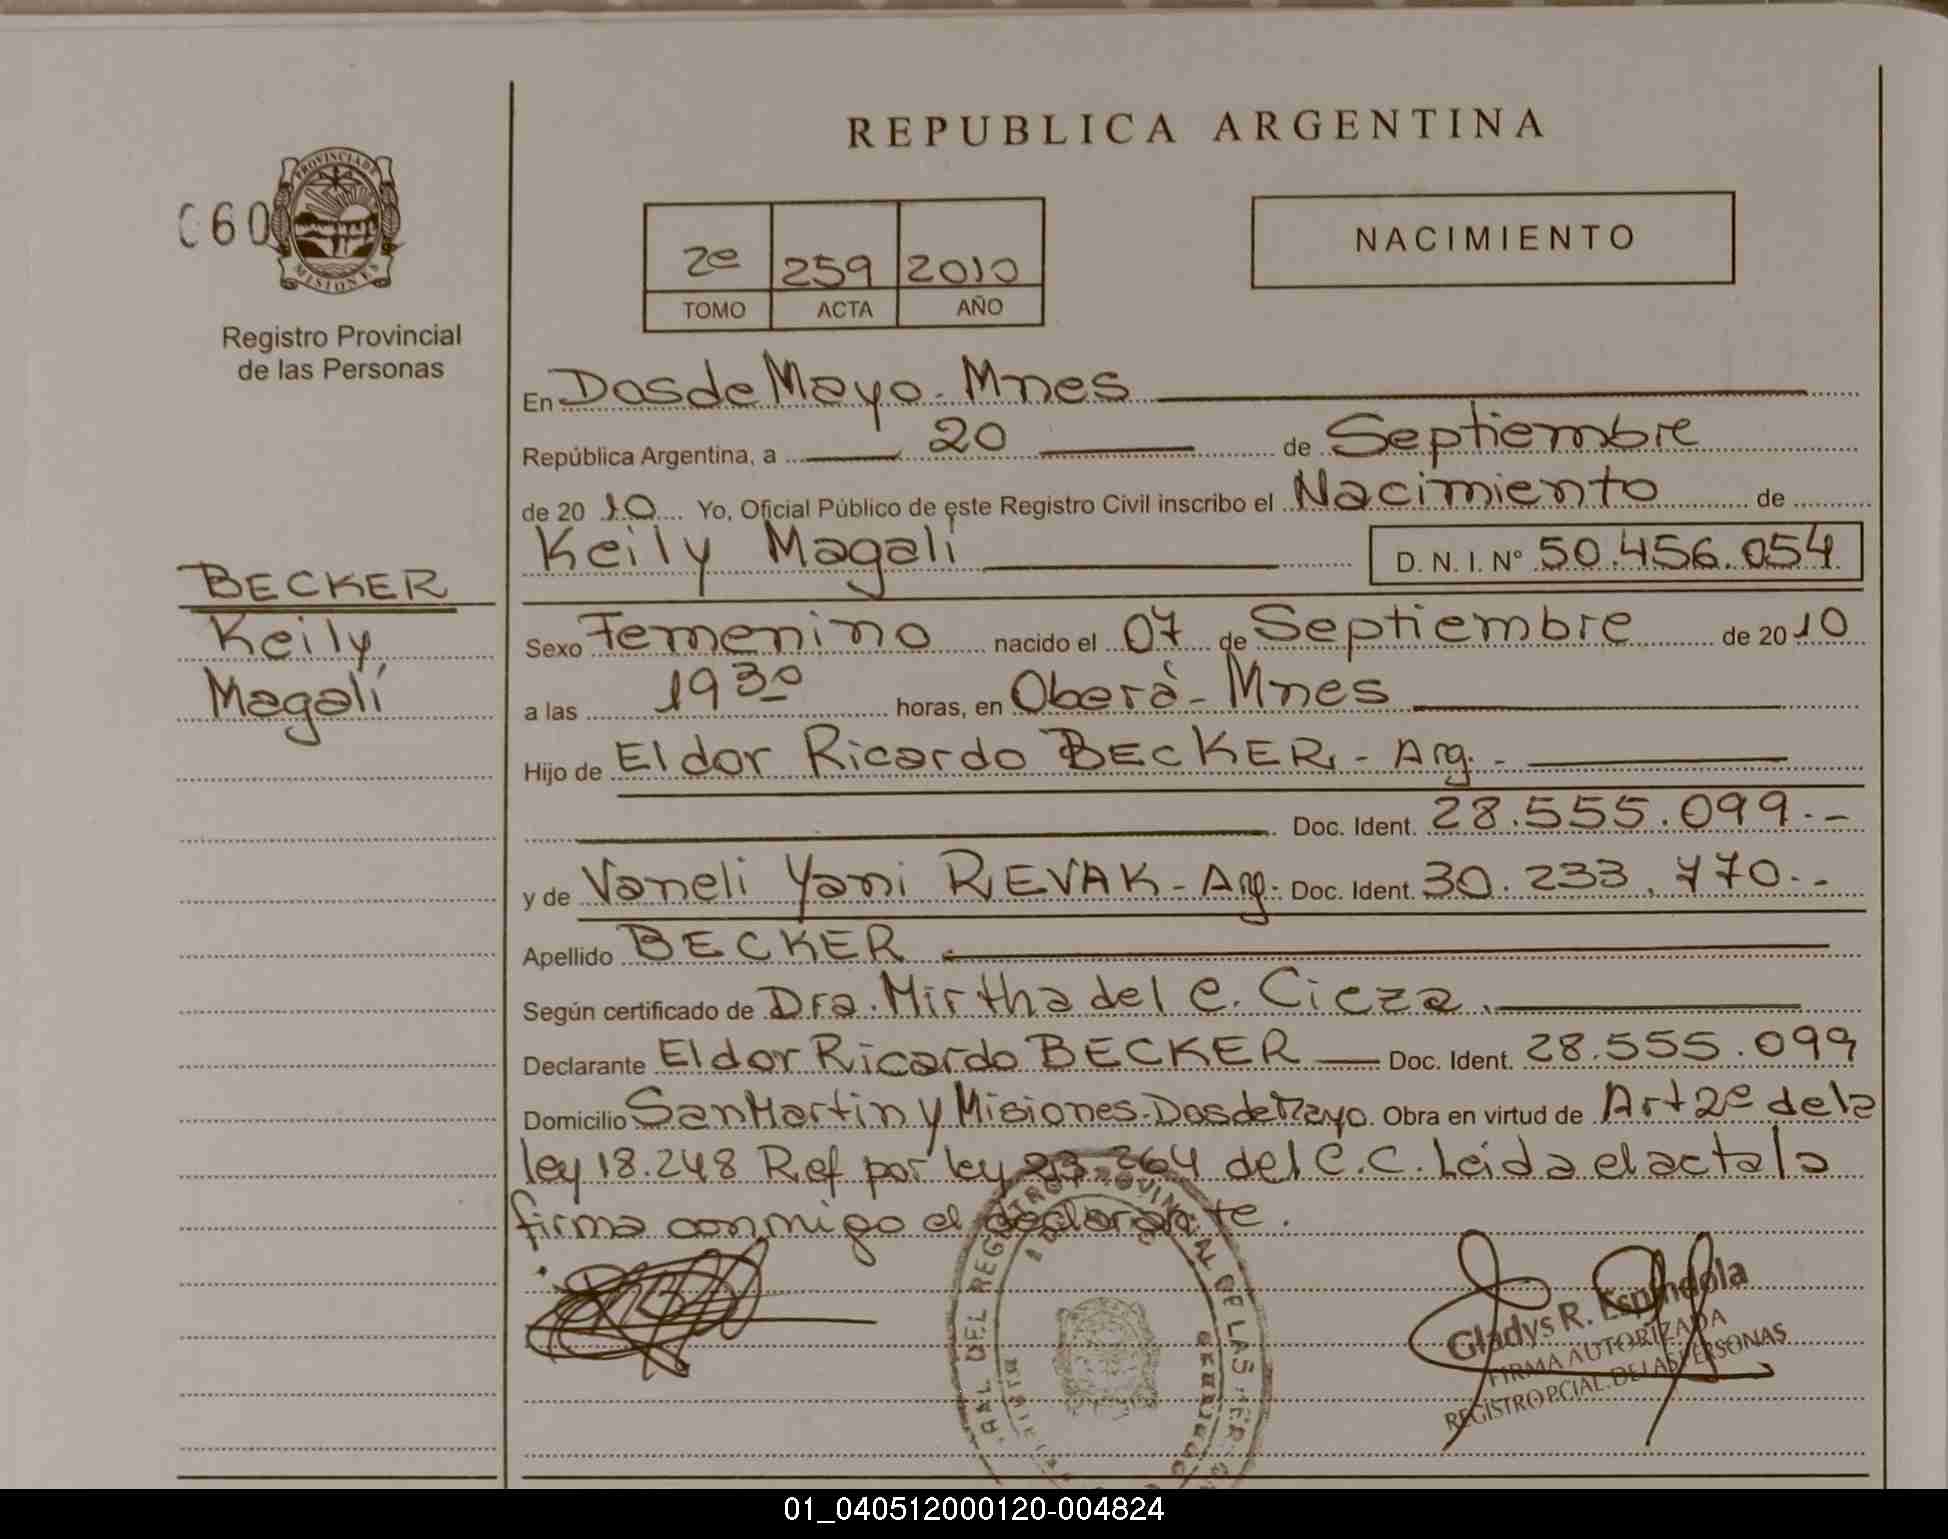 REPUBLICA ARGENTINA
C60
PROVINCIA DE
MISIONES
Registro Provincial
de las Personas
2º 259 2010
TOMO ACTA AÑO
NACIMIENTO
En Dos de Mayo. Mnes
República Argentina, a 20 de Septiembre
de 2010 Yo, Oficial Público de este Registro Civil inscribo el Nacimiento de
Keily Magalí D. N. I. Nº 50.456.054
BECKER
Keily
Magalí
Sexo Femenino nacido el 07 de Septiembre de 2010
a las 19 30 horas, en Oberá - Mnes
Hijo de Eldor Ricardo BECKER - Arg. -
Doc. Ident. 28.555.099.-
y de Vaneli Yani REVAK - Arg. Doc. Ident. 30.233.770.-
Apellido BECKER
Según certificado de Dra. Mirtha del C. Cieza.
Declarante Eldor Ricardo BECKER Doc. Ident. 28.555.099
Domicilio San Martin y Misiones. Dos de Mayo. Obra en virtud de Art 2º de la
ley 18.248 Ref por ley 23.264 del C.C. Leida el acta la
firma conmigo el declarante.
DEL REGISTRO PROVINCIAL DE LAS PER
Gladys R. Espindola
FIRMA AUTORIZADA
REGISTRO PCIAL. DE LAS PERSONAS
01_040512000120-004824